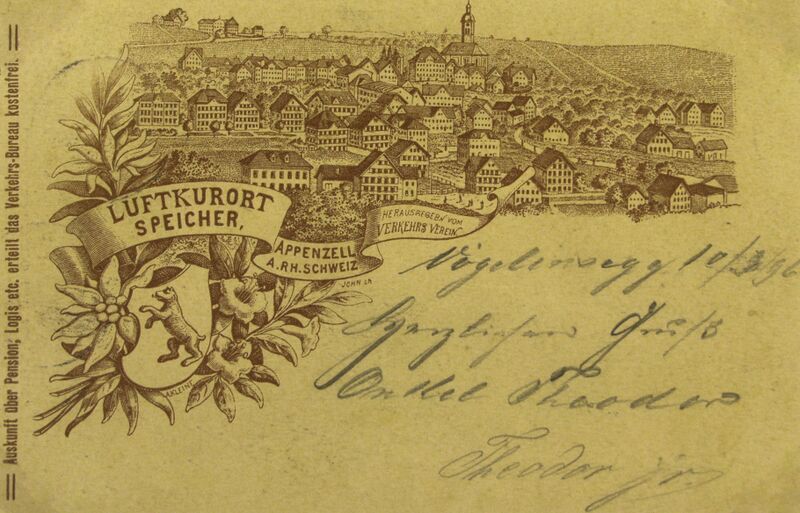 Auskunft über Pension, Logis etc. erteilt das Verkehrs-Bureau kostenfrei.
LUFTKURORT
SPEICHER,
APPENZELL
A.RH. SCHWEIZ
HERAUSGEGEBN VOM
VERKEHRS VEREIN
JOHN
A.KLEINE
Vögelinsegg 10/3 96
Herzlichen Gruß
Onkel Theodor
Theodor jr.